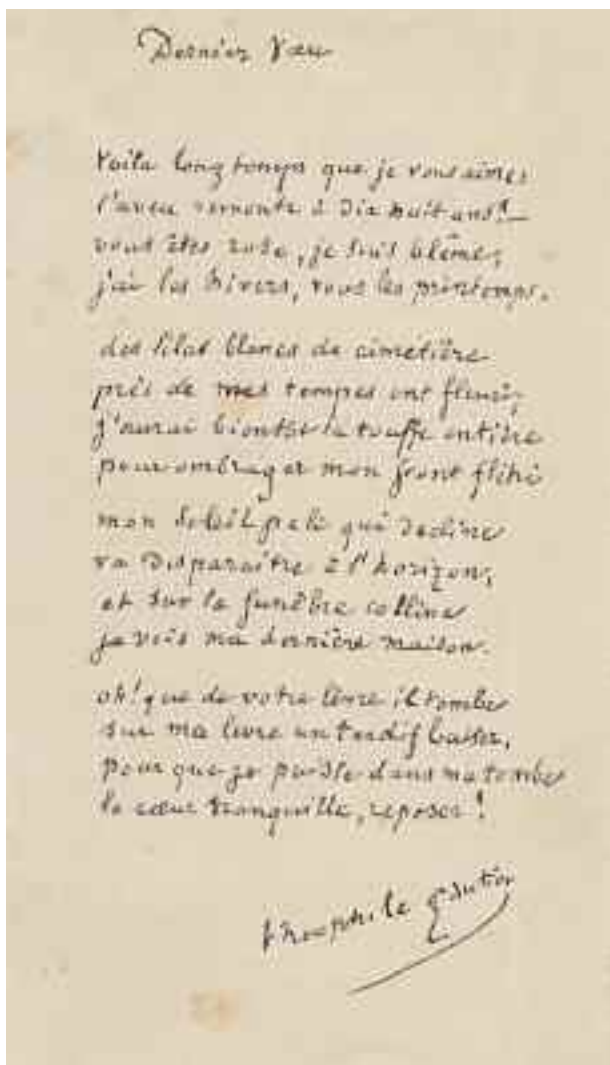 Dernier Vœu
Voila longtemps que je vous aime;
l'aveu remonte à dix huit ans!—
vous êtes rose, je suis blême;
j'ai les hivers, vous les printemps.
des lilas blancs de cimetière
près de mes tempes ont fleuri;
j'aurai bientôt la touffe entière
pour ombrager mon front flétri
mon soleil pali qui decline
va disparaitre à l'horizon,
et sur la funèbre colline
je vois ma dernière maison.
oh! que de votre lèvre il tombe
sur ma lèvre un tardif baiser,
pour que je puisse dans ma tombe
le cœur tranquille, reposer!
théophile Gautier